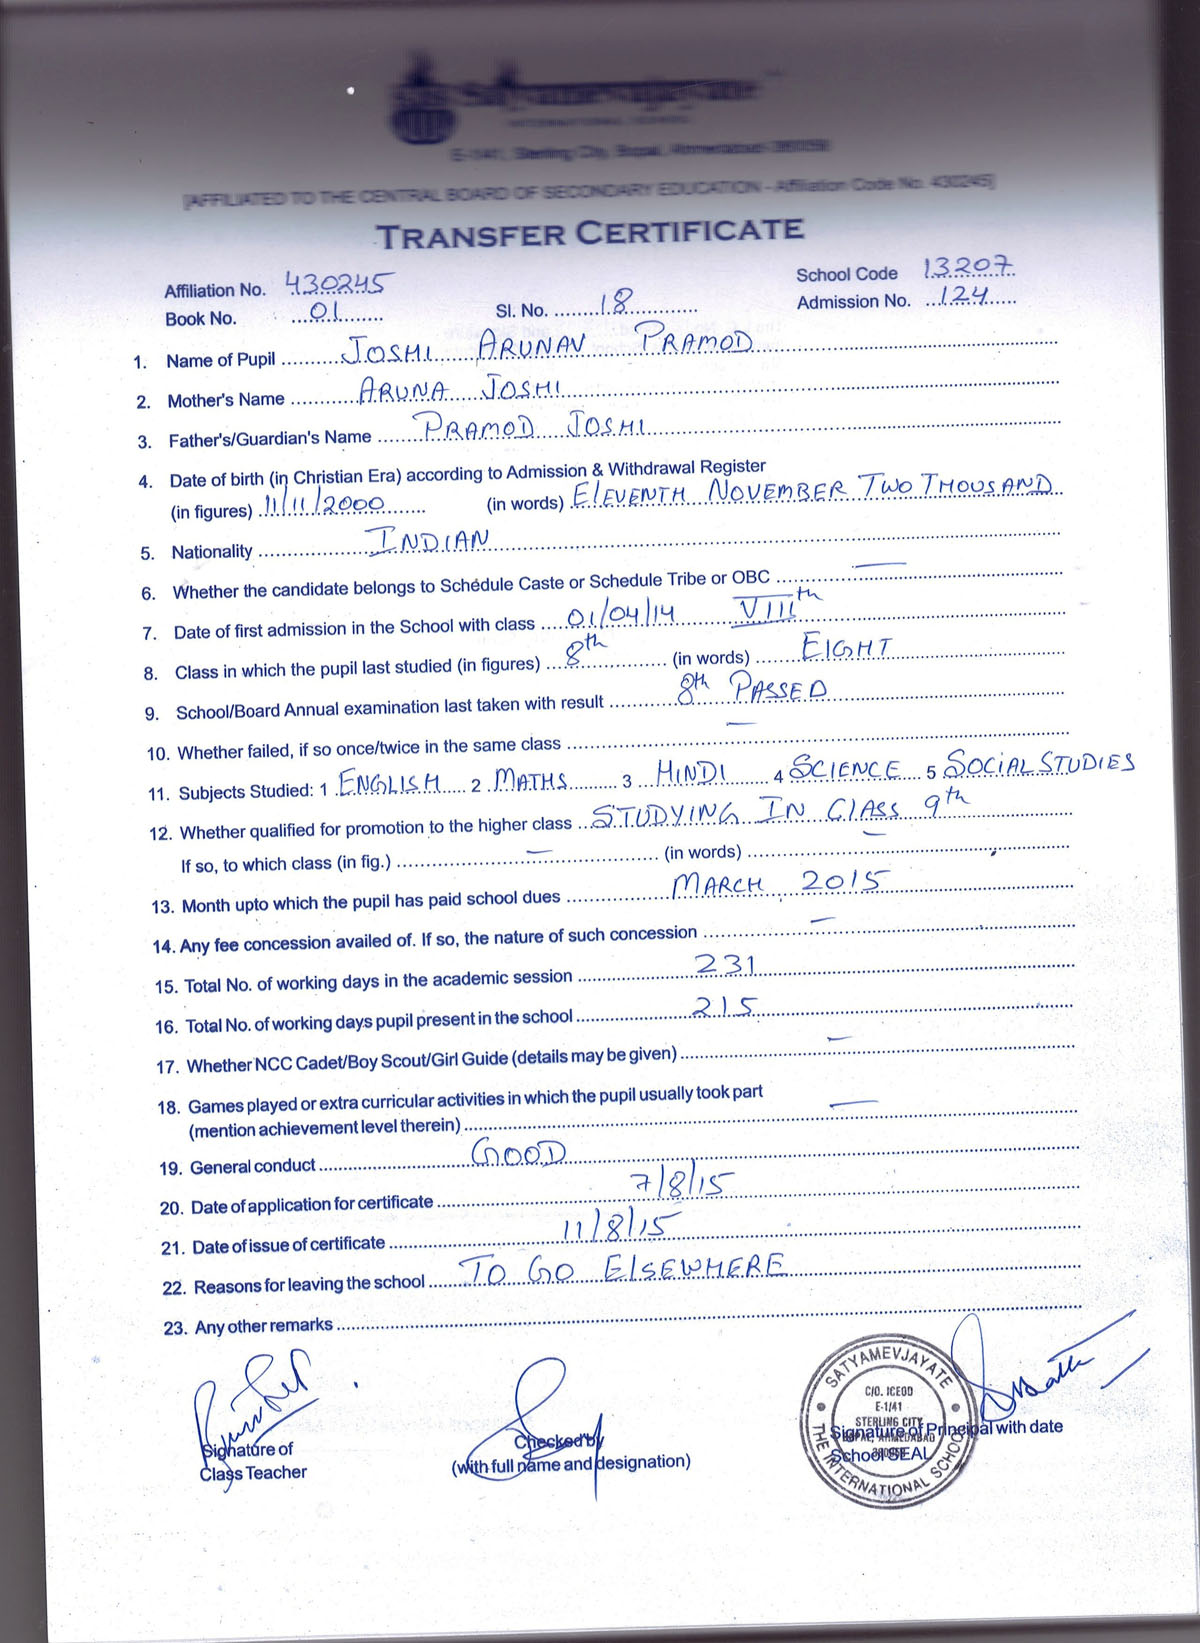 Satyamevjayate
INTERNATIONAL SCHOOL
E-1/41, Sterling City, Bopal, Ahmedabad-380058
[AFFILIATED TO THE CENTRAL BOARD OF SECONDARY EDUCATION - Affiliation Code No. 430245]
TRANSFER CERTIFICATE
Affiliation No. 430245 School Code 13207
Book No. 01 Sl. No. 18 Admission No. 124
1. Name of Pupil JOSHI ARUNAV PRAMOD
2. Mother's Name ARUNA JOSHI
3. Father's/Guardian's Name PRAMOD JOSHI
4. Date of birth (in Christian Era) according to Admission & Withdrawal Register
(in figures) 11/11/2000 (in words) ELEVENTH NOVEMBER TWO THOUSAND
5. Nationality INDIAN
6. Whether the candidate belongs to Schedule Caste or Schedule Tribe or OBC —
7. Date of first admission in the School with class 01/04/14 VIIIth
8. Class in which the pupil last studied (in figures) 8th (in words) EIGHT
9. School/Board Annual examination last taken with result 8th PASSED
10. Whether failed, if so once/twice in the same class —
11. Subjects Studied: 1 ENGLISH 2 MATHS 3 HINDI 4 SCIENCE 5 SOCIAL STUDIES
12. Whether qualified for promotion to the higher class STUDYING IN CLASS 9th
If so, to which class (in fig.) — (in words) —
13. Month upto which the pupil has paid school dues MARCH 2015
14. Any fee concession availed of. If so, the nature of such concession —
15. Total No. of working days in the academic session 231
16. Total No. of working days pupil present in the school 215
17. Whether NCC Cadet/Boy Scout/Girl Guide (details may be given) —
18. Games played or extra curricular activities in which the pupil usually took part
(mention achievement level therein) —
19. General conduct GOOD
20. Date of application for certificate 7/8/15
21. Date of issue of certificate 11/8/15
22. Reasons for leaving the school TO GO ELSEWHERE
23. Any other remarks
Signature of
Class Teacher
Checked by
(with full name and designation)
Signature of Principal with date
School SEAL
SATYAMEVJAYATE
THE INTERNATIONAL SCHOOL
C/O. ICEOD
E-1/41
STERLING CITY
BOPAL, AHMEDABAD